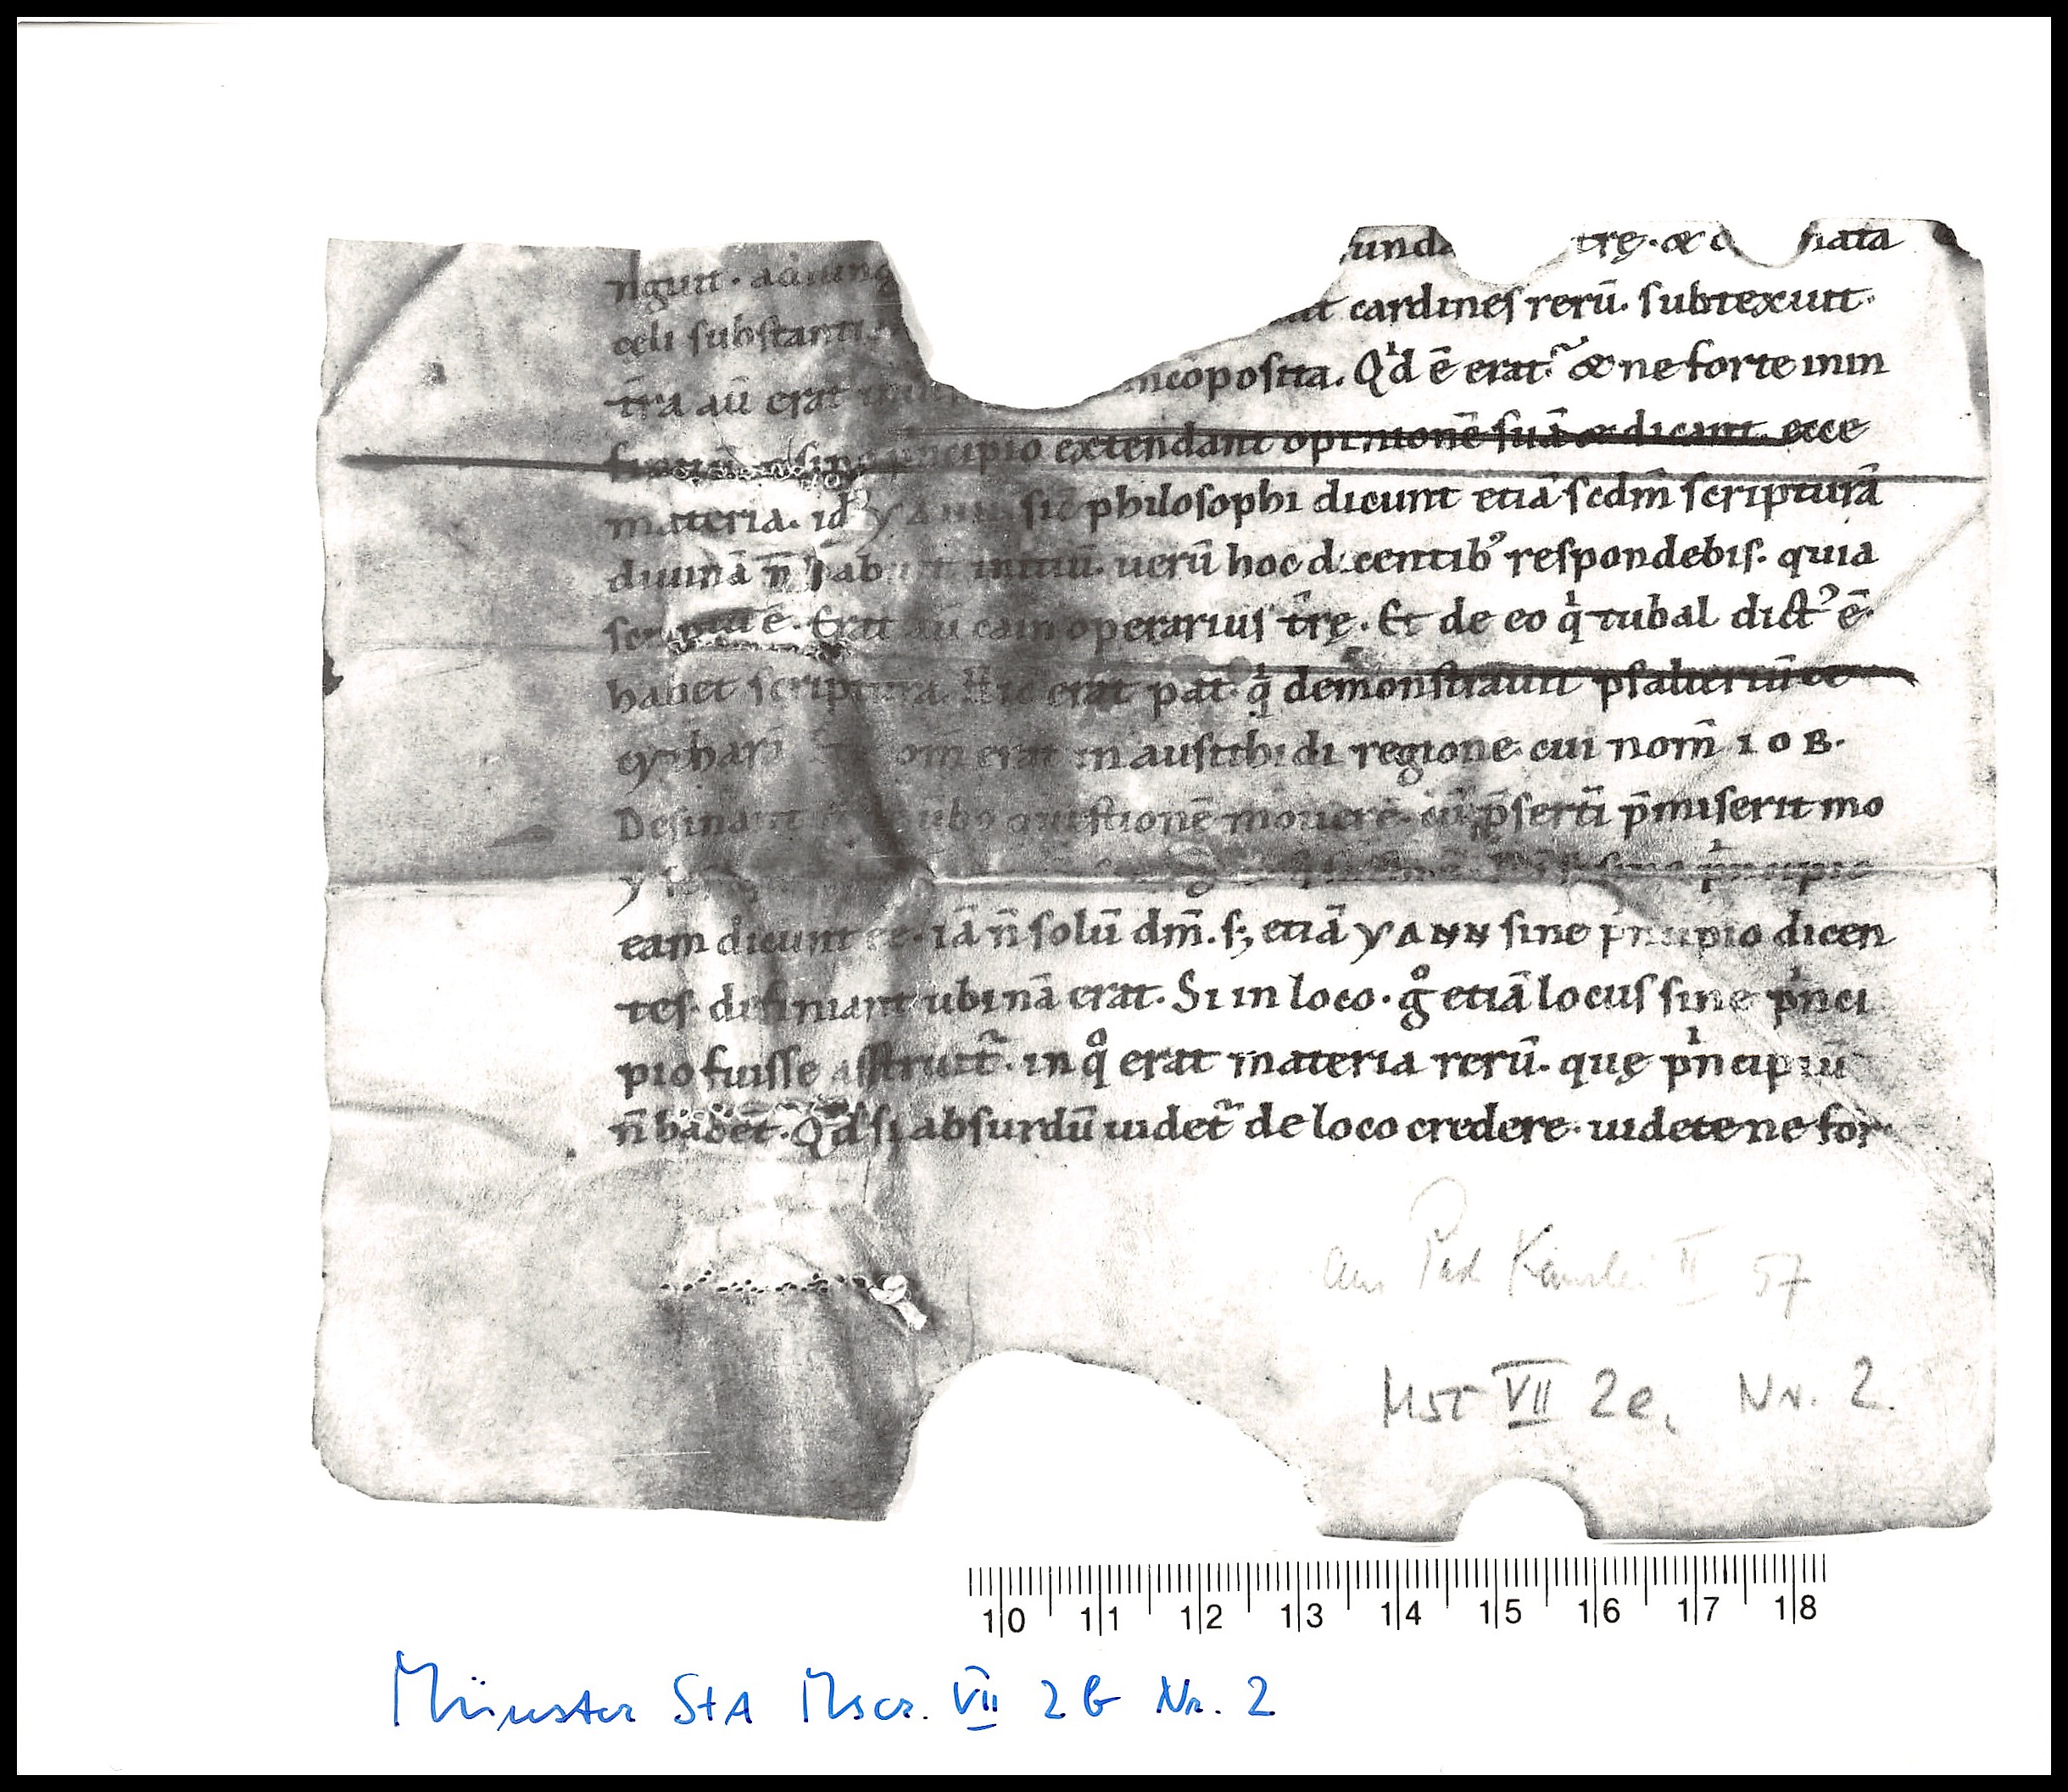 unda trę. & c nata
ngunt. adiung
cęli substanti t cardines rerū. subtexuit.
tr̄a aū erat ncōposita. Qd ē erat? & ne forte inin
sine principio extendant opinionē suā & dicant. ecce
materia. id sic philosophi dicunt etiā scdm̄ scripturā
diuinā n̄ habuit initiū. uerū hoc dicentib' respondebis. quia
scriptū ē. Erat aū cain operarius tr̄ę. Et de eo q̇ tubal dict' ē.
habet scriptura. Hic erat pat̄ q̇ demonstrauit psalteriū &
cytharā om̄ erat in austitidi regione. cui nom̄ IOB.
Desinant ūbo questionē mouere. cū p̄sertī p̄miserit mo
y sine ṗncipio
eam dicunt ee. iā n̄ solū dm̄. s; etiā yANN sine ṗncipio dicen
tes. difiniant ubinā erat. Si in loco. g̊ etiā locus sine ṗnci
pio fuisse asstruit̄. in q̊ erat materia rerū. quę ṗncipiū
n̄ habet. Qd si absurdū uidet̄ de loco credere. uidete ne for
aus Pad Kanzlei II 57
MST VII 2e, Nr. 2.
10 11 12 13 14 15 16 17 18
Münster StA Mscr. VII 2b Nr. 2